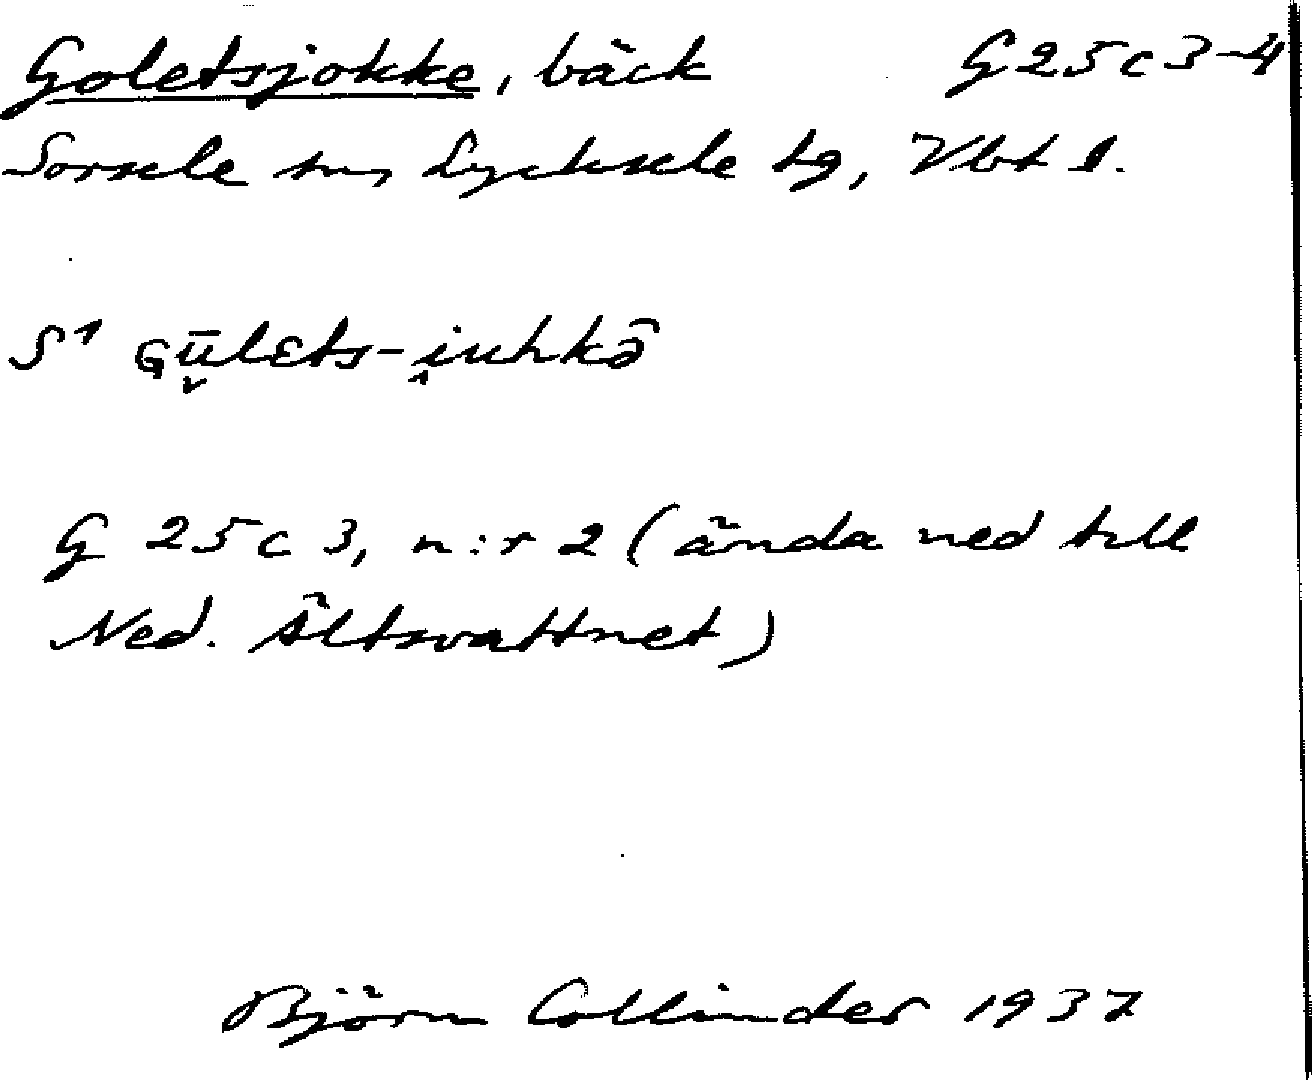 Goletsjokke, bäck G25c3-4
Sorsele sn, Lycksele tg, Vbt l.
S1 Gū̬lεts-i̭uhkə̑
G 25c 3, n:r 2 (ända ned till
Ned. Ältsvattnet)
Björn Collinder 1937